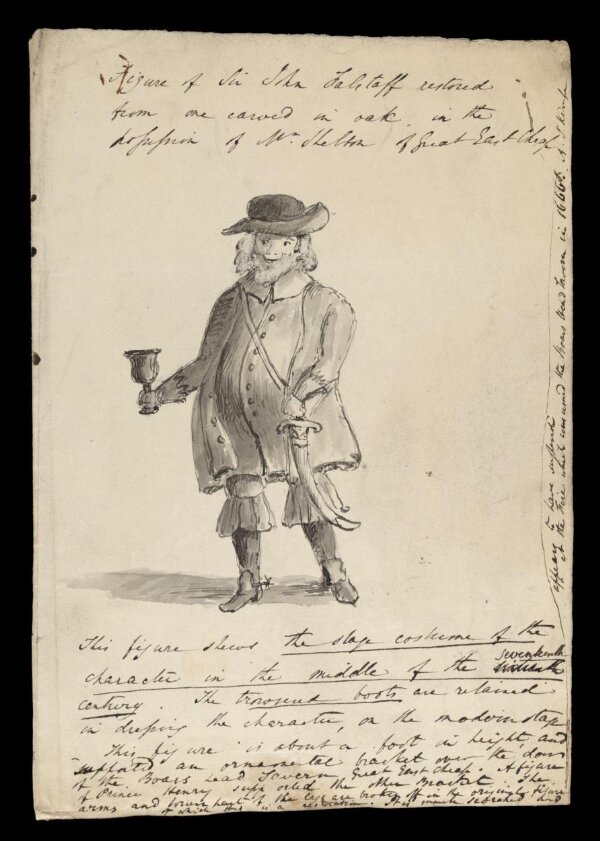 Figure of Sir John Falstaff restored
from one carved in oak, in the
possession of Mrs. Shelton of Great East Cheap
This figure shews the stage costume of the
character in the middle of the seventeenth
century. The trowsend boots are retained
in dressing the character, on the modern stage
This figure is about a foot in height, and
supported an ornamental bracket over the door
of the Boars Head Tavern, Great East Cheap. A figure
of Prince Henry supported the other Bracket. The
arms and fore part of the legs are broken off in the original figure
of which this is a restoration. It is much scorched and
appears to have suffered
at the Fire which consumed the Boars Head Tavern in 1666.